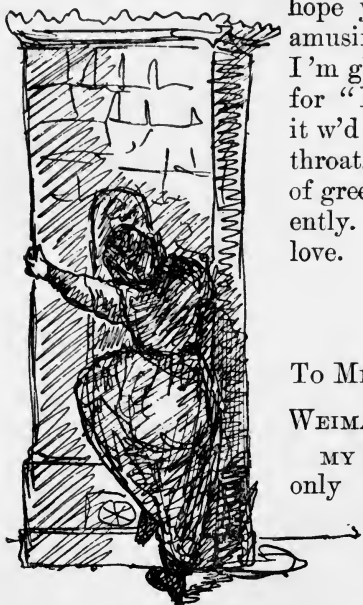 hope y
amusin
I'm g
for "
it w'd
throat
of gree
ently.
love.
To M
WEIMA
MY
only